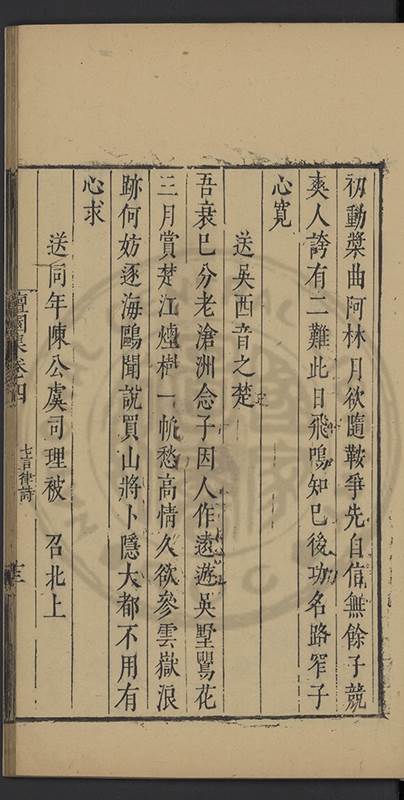 初動槳曲阿林月欲隨鞍爭先自信無餘子競
爽人誇有二難此日飛鳴知已後功名路窄子
心寬
送吳酉音之楚
吾衰已分老滄洲念子因人作遠遊吳墅鸎花
三月賞楚江煙樹一帆愁高情久欲參雲嶽浪
跡何妨逐海鷗聞說買山將卜隱大都不用有
心求
送同年陳公虞司理被 召北上
集卷四
七言律詩